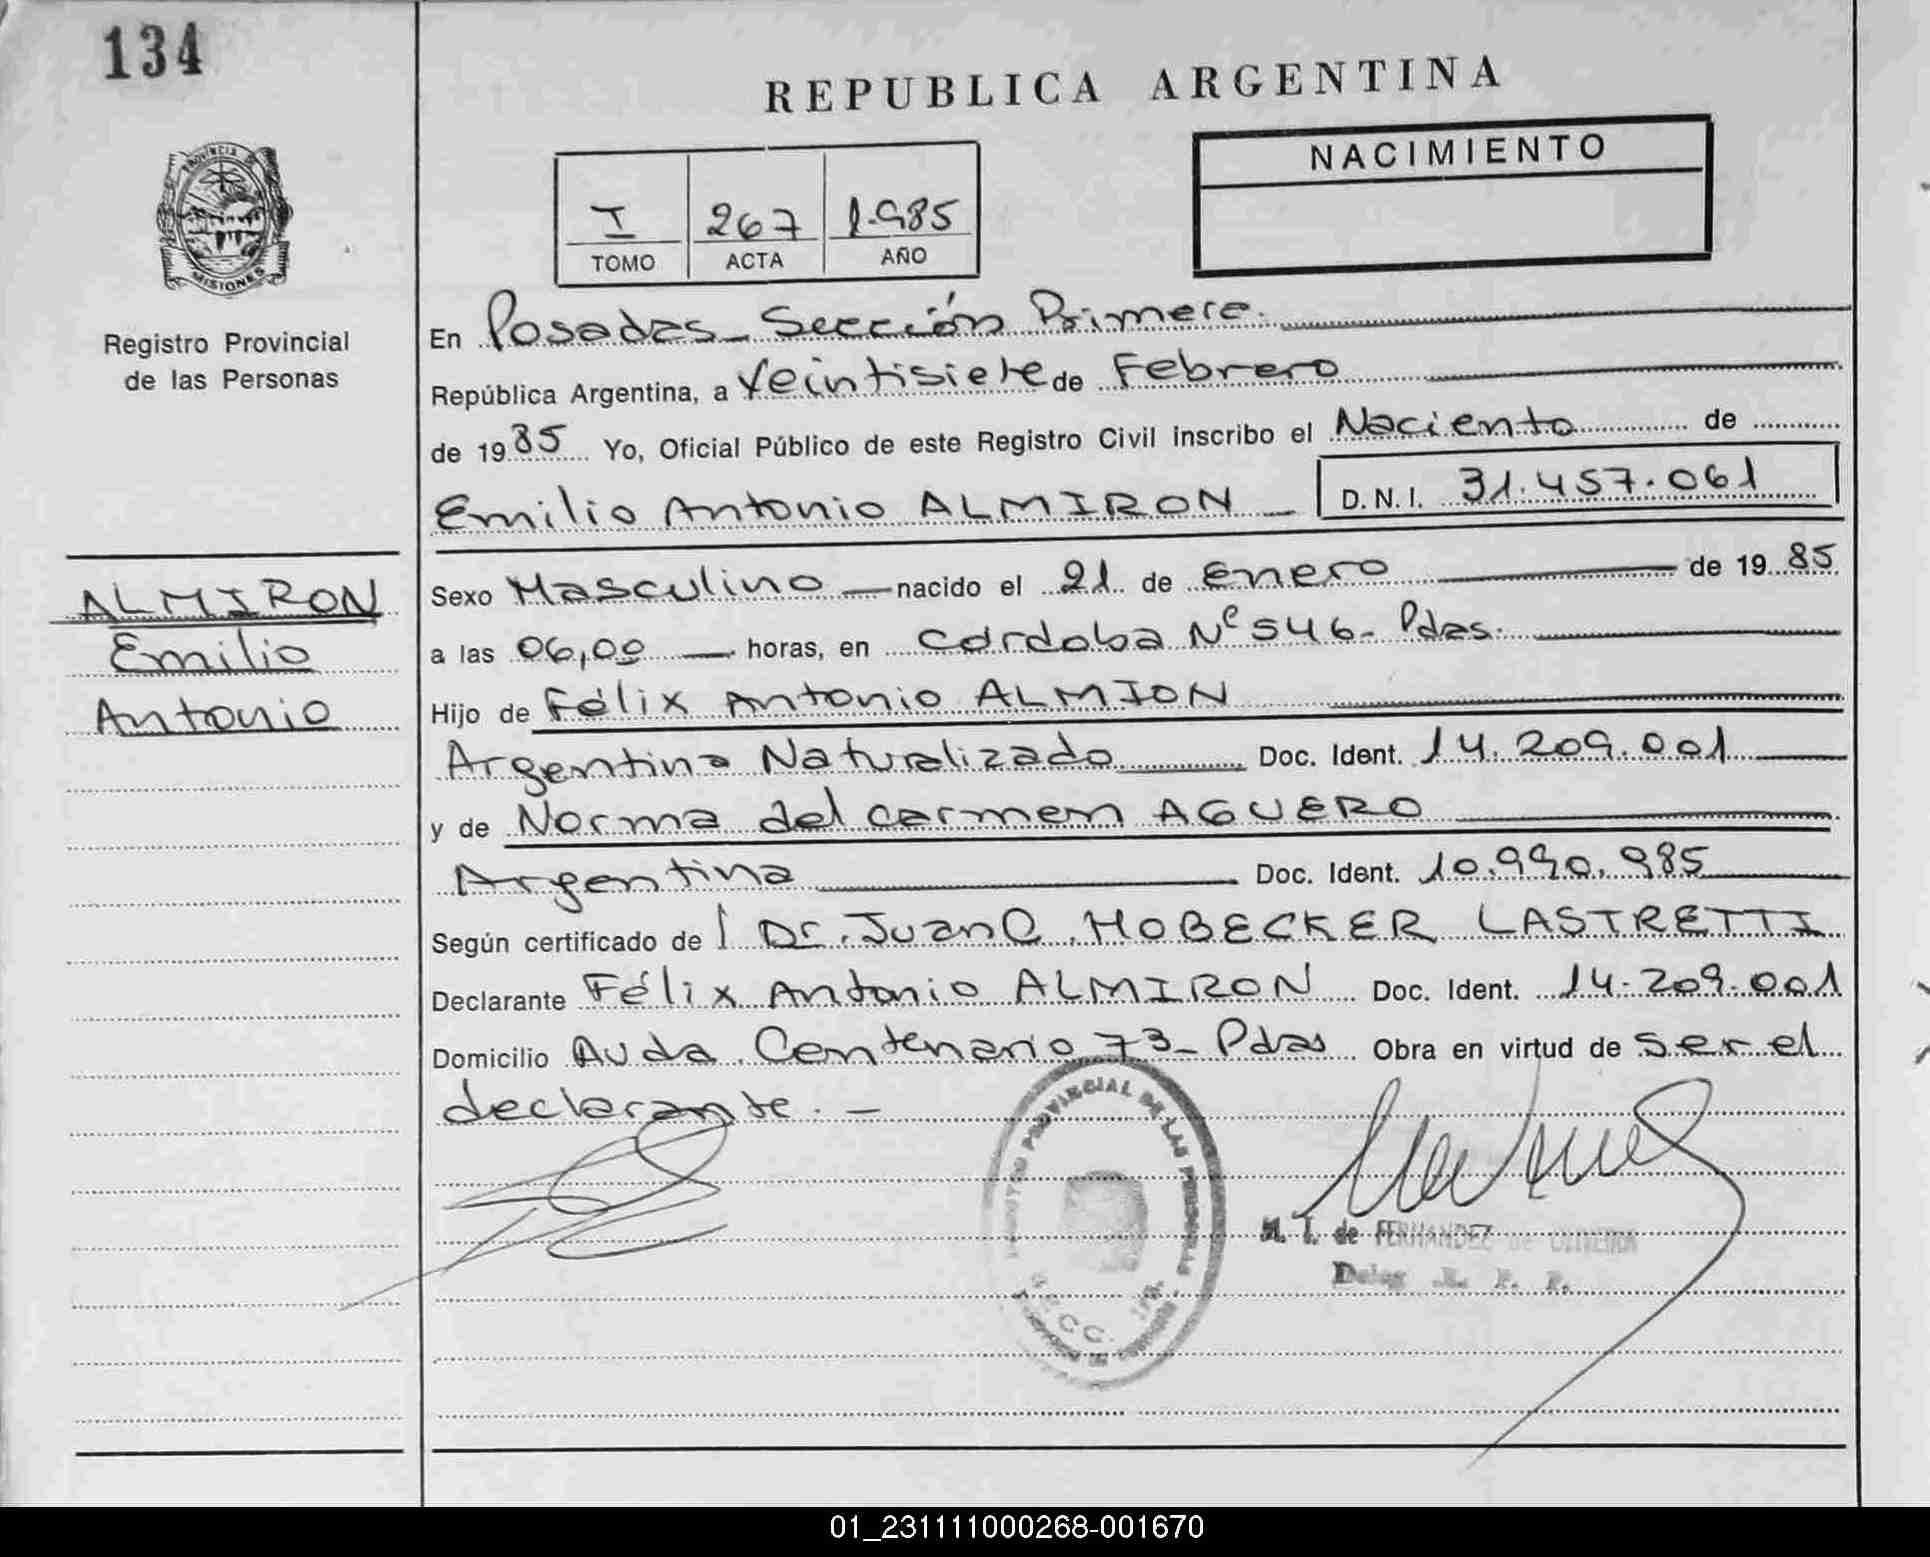 134
REPUBLICA ARGENTINA
NACIMIENTO
I 267 1.985
TOMO ACTA AÑO
PROVINCIA DE
MISIONES
Registro Provincial
de las Personas
En Posadas - Sección Primera.
República Argentina, a Veintisiete de Febrero
de 1985 Yo, Oficial Público de este Registro Civil inscribo el Naciento de
Emilio Antonio ALMIRON - D.N.I. 31.457.061
ALMIRON
Emilio
Antonio
Sexo Masculino - nacido el 21 de Enero de 1985
a las 06,00 - horas, en Córdoba Nº 546 - Pdas.
Hijo de Félix Antonio ALMION
Argentino Naturalizado Doc. Ident. 14.209.001
y de Norma del Carmen AGUERO
Argentina Doc. Ident. 10.990.985
Según certificado de Dr. Juan C. HOBECKER LASTRETTI
Declarante Félix Antonio ALMIRON Doc. Ident. 14.209.001
Domicilio Avda. Centenario 73 - Pdas Obra en virtud de ser el
declarante. -
PROVINCIAL DE LAS PERSONAS
SECC. 1ra.
M. T. de FERNANDEZ de OLIVEIRA
Deleg. R. P. P.
01_231111000268-001670